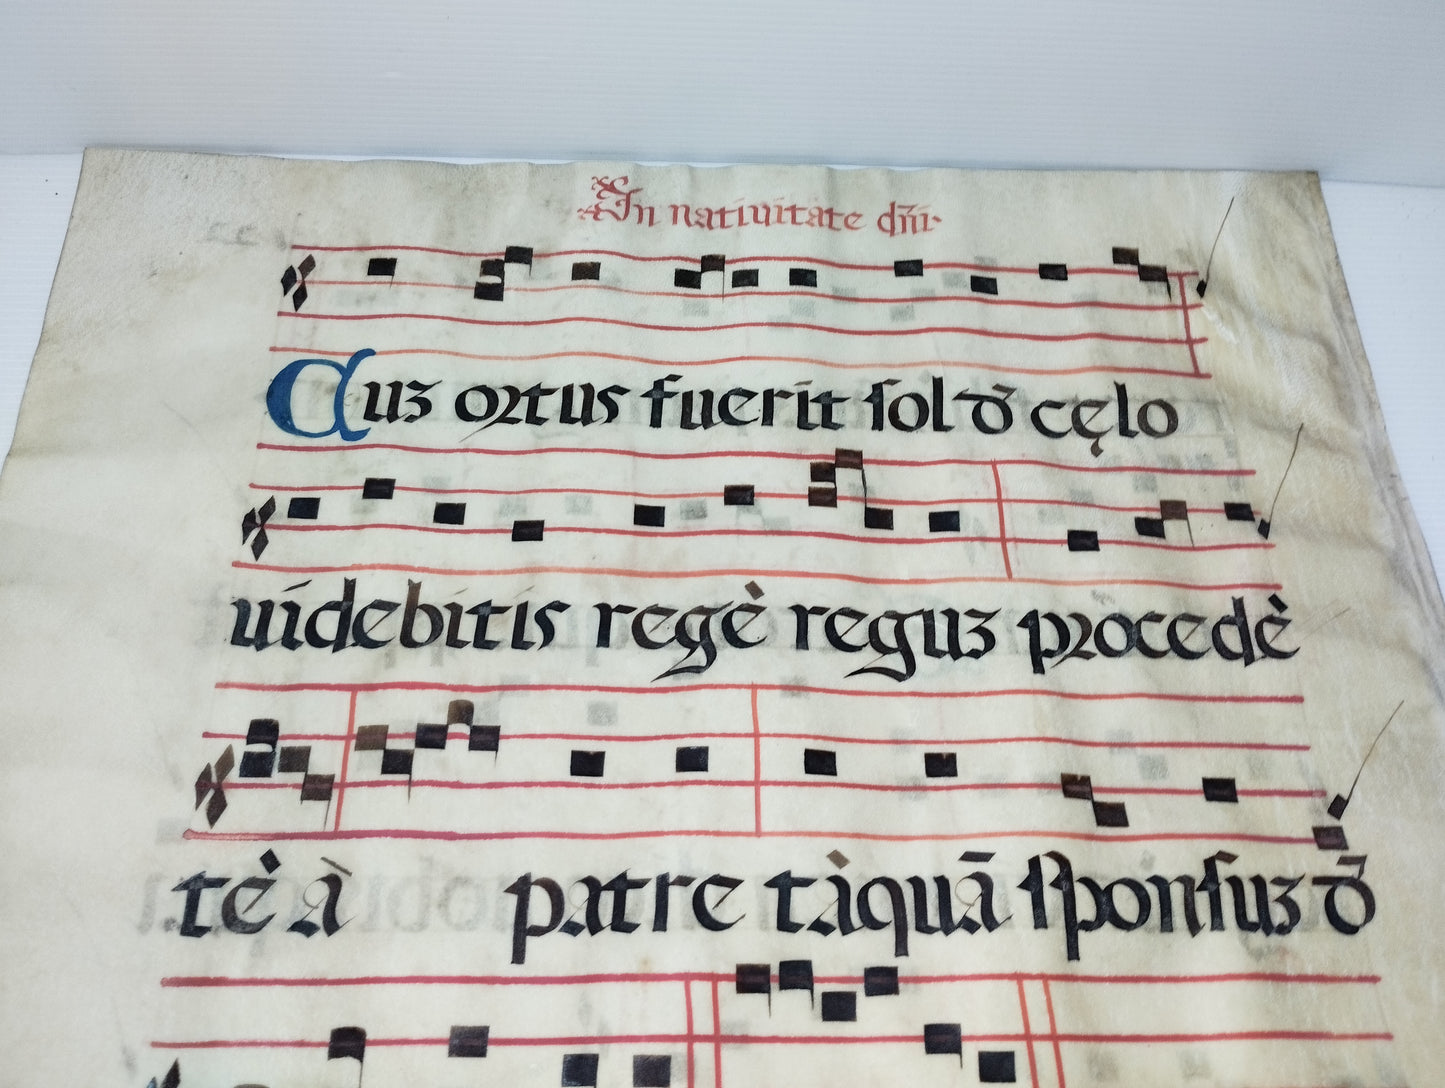 In natiuitate dñi·
Cuʒ ortus fuerit sol d̄ cęlo
uidebitis regè reguʒ procedè
tè à patre tàquā sponsuʒ d̄